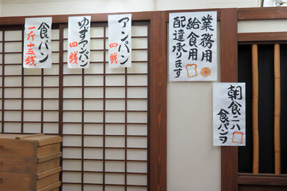 業務用
給食用
配達承ります
朝食ニハ
食パンヲ
アンパン
四銭
ゆずアンパン
四銭
食パン
一斤十五銭